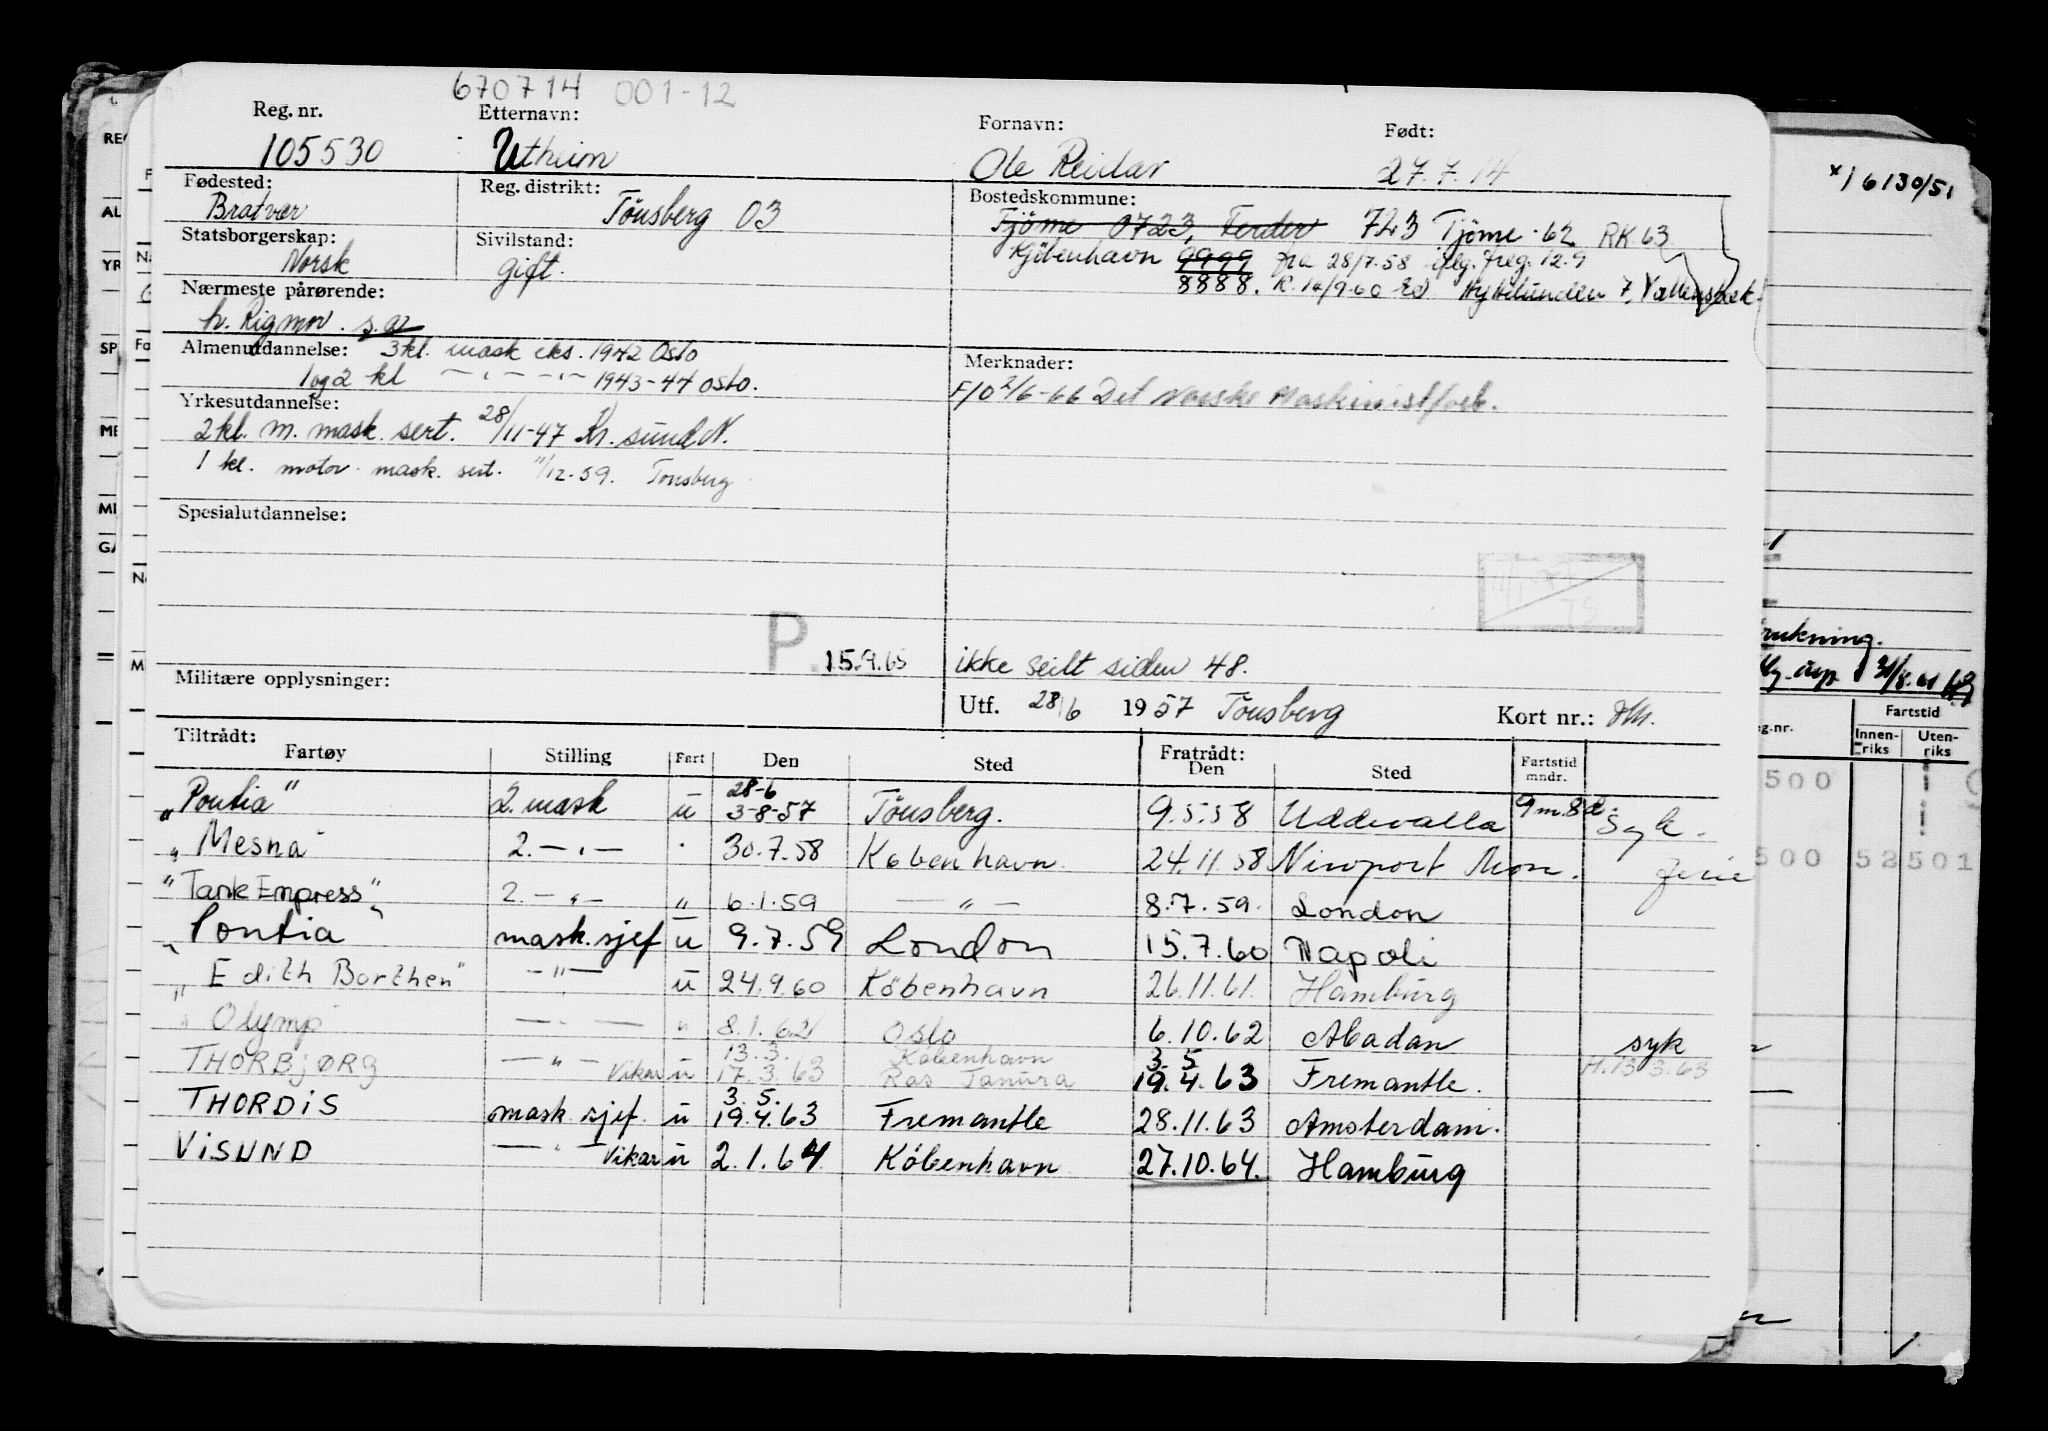 670714 001-12
Reg. nr. Etternavn: Fornavn: Født:
105530 Utheim Ole Reidar 27.7.14
Fødested: Reg. distrikt: Bostedskommune:
Bratvær Tönsberg 03 Tjöme 0723, Ferder 723 Tjöme 62 RK 63
Statsborgerskap: Sivilstand: Kjöbenhavn 9999 fra 28/7.58 iflg. freg. 12.9
Norsk gift. 8888. R. 14/9-60
Nærmeste pårørende:
h. Rigmor. s.a.
Almenutdannelse: 3 kl. mask eks. 1942 Oslo
1 og 2 kl — " — " — 1943-44 Oslo.
Merknader:
F/O 2/6-66 Det Norske Maskinistforb.
Yrkesutdannelse:
2 kl. m. mask. sert. 28/11-47 Kr. sund N.
1 kl. motor mask. sert. 11/12.59. Tönsberg
Spesialutdannelse:
P. 15.9.65 ikke seilt siden 48.
Militære opplysninger:
Utf. 28/6 1957 Tönsberg Kort nr.:
Tiltrådt: Fratrådt:
Fartøy Stilling Fart Den Sted Den Sted Fartstid mndr.
28-6
"Pontia" 2. mask u 3-8-57 Tönsberg. 9.5.58 Uddevalla 9 m. 8 d. Syk.
" Mesna 2. — " — " 30.7.58 København 24.11.58 Newport Mon. ferie
"Tank Empress" 2. — " — " 6.1.59 — " — 8.7.59. London
" Pontia mask. sjef u 9.7.59 London 15.7.60 Napoli
" Edith Borthen" — " — u 24.9.60 Köbenhavn 26.11.61. Hamburg
" Olymp — " — " 8.1.62 Oslo 6.10.62 Abadan syk
13.3. København 3. 5
THORBJØRG — " — Vikar u 17.3.63 Ras Tanura 19.4.63 Fremantle. H. 13 3.63
3. 5.
THORDIS mask. sjef. u 19.4.63 Fremantle 28.11.63 Amsterdam.
VISUND — " — Vikar u 2.1.64 Köbenhavn 27.10.64. Hamburg
x) 6130/51
Fartstid
Innenriks Utenriks
500
500 52 501